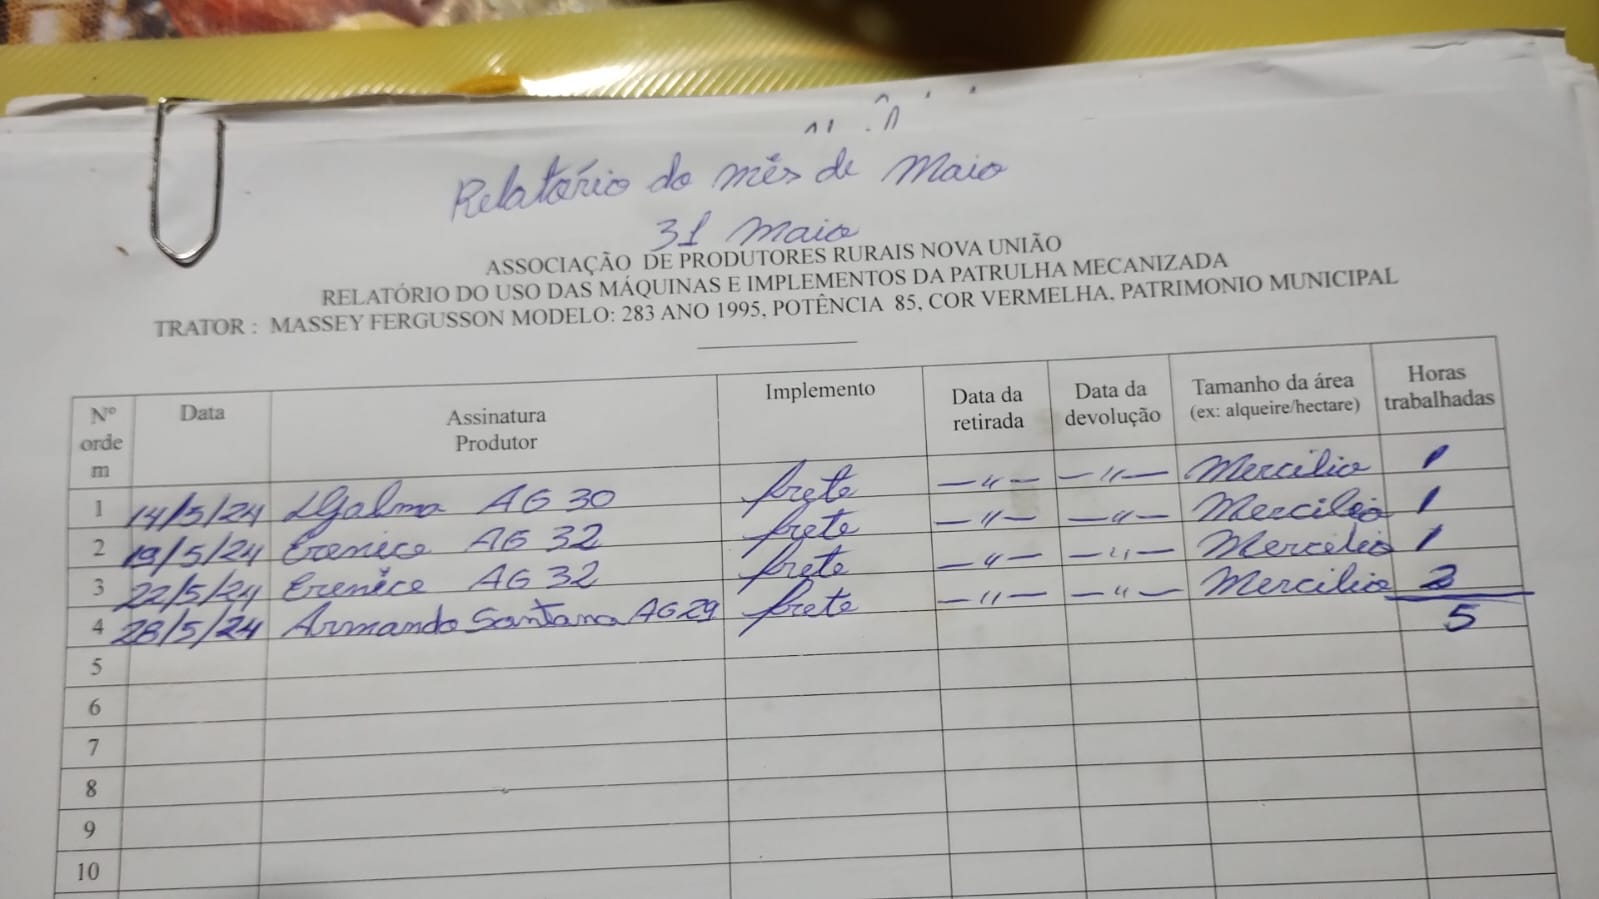 Relatório do mês de Maio
31 Maio
ASSOCIAÇÃO DE PRODUTORES RURAIS NOVA UNIÃO
RELATÓRIO DO USO DAS MÁQUINAS E IMPLEMENTOS DA PATRULHA MECANIZADA
TRATOR : MASSEY FERGUSSON MODELO: 283 ANO 1995, POTÊNCIA 85, COR VERMELHA, PATRIMONIO MUNICIPAL
Nº ordem Data Assinatura Produtor Implemento Data da retirada Data da devolução Tamanho da área (ex: alqueire/hectare) Horas trabalhadas
1 14/5/24 DJalma AG 30 frete —"— —"— Mercilio 1
2 19/5/24 Erenice AG 32 frete —"— —"— Mercilio 1
3 22/5/24 Erenice AG 32 frete —"— —"— Mercelio 1
4 28/5/24 Armando Santana AG 29 frete —"— —"— Mercilio 2
5 5
6
7
8
9
10